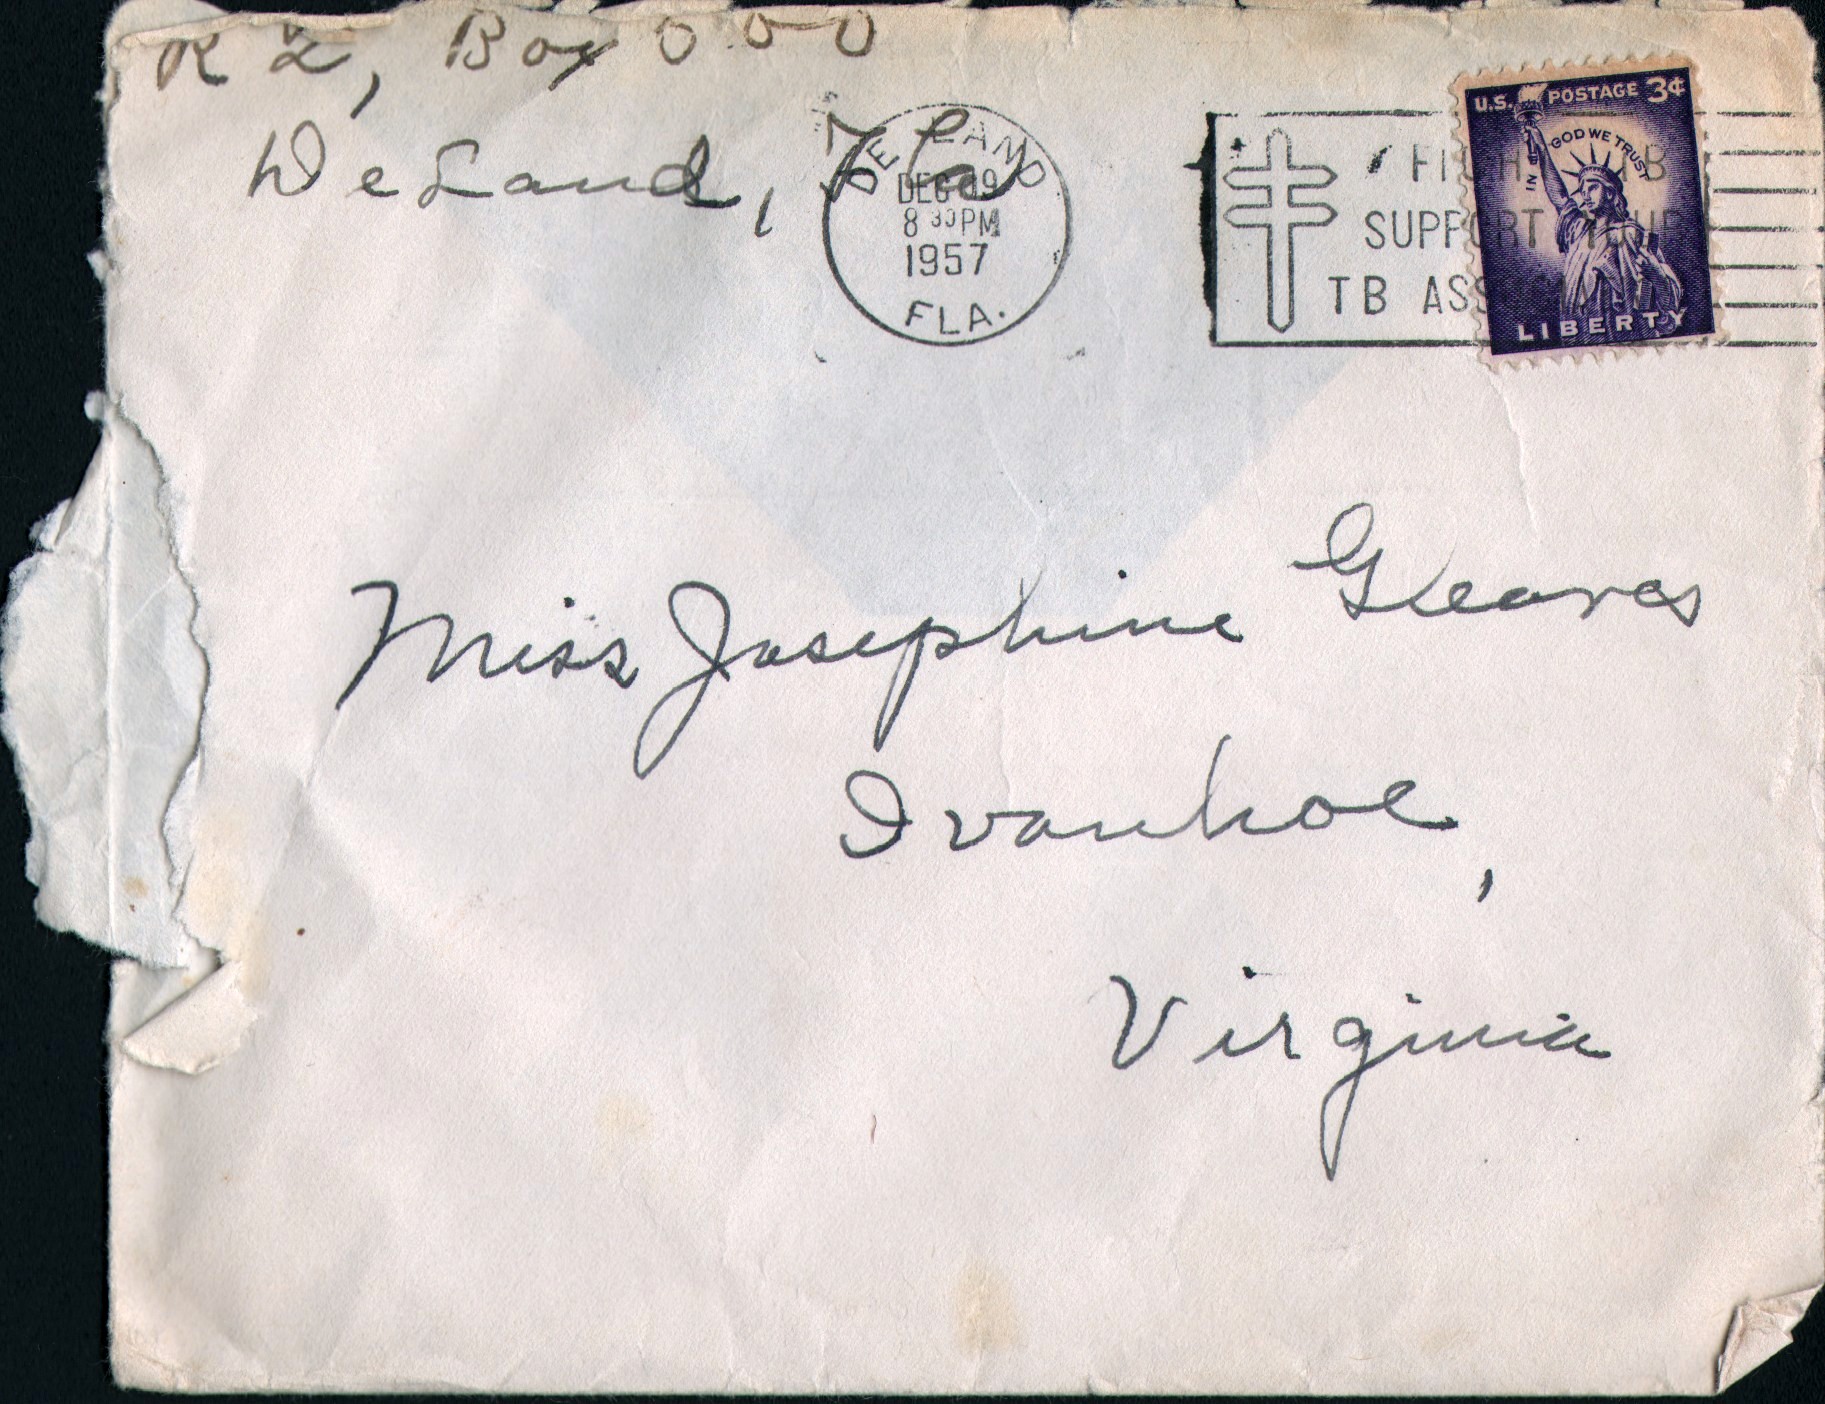 R 2, Box
DeLand, Fla
DELAND
DEC 19
8 30 PM
1957
FLA.
FIGHT TB
SUPPORT YOUR
TB ASS
U.S. POSTAGE 3¢
IN GOD WE TRUST
LIBERTY
Miss Josephine Gleaves
Ivanhoe,
Virginia